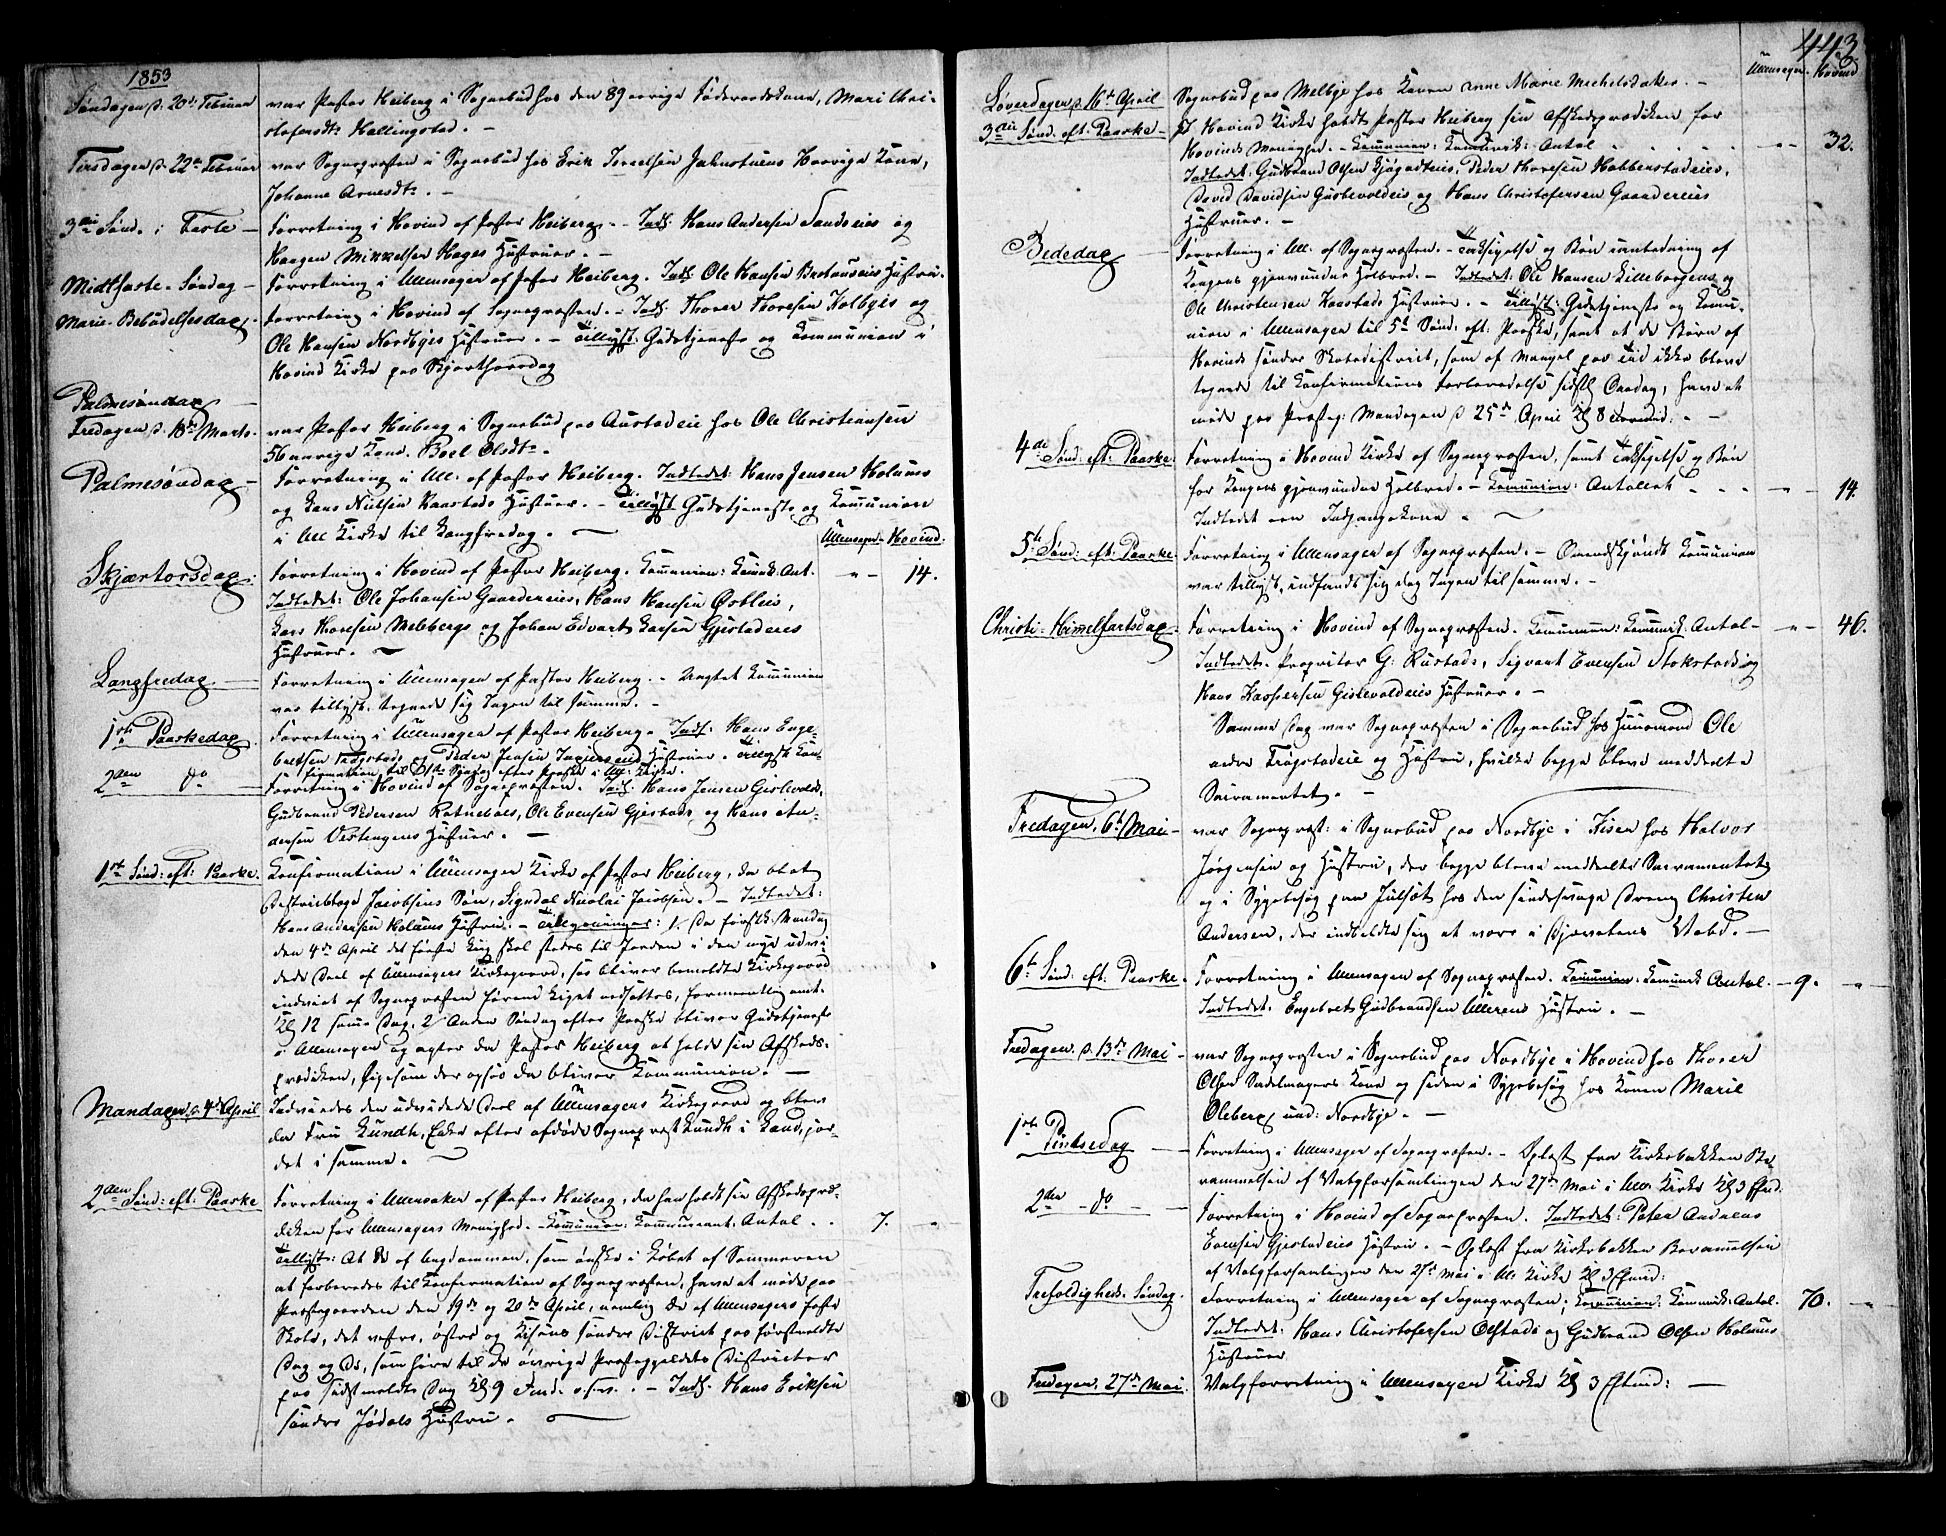 1853
Søndagen d. 20de Februar
var Pastor Heiberg i Sognebud hos den 89 aarige Føderaadskone, Mari Chri-
stofersdtr Hallingstad. —
Tirsdagen d. 22de Februar
var Sognepræsten i Sognebud hos Erik Israelsen Jahnstuens Kone,
Johanne Arnesdtr. —
3die Sønd. i Faste —
Forretning i Hovind af Pastor Heiberg. — Indl. Hans Andersen Sandseies og
Haagen Mikkelsen Hages Hustruer. —
Midtfaste-Søndag —
Forretning i Ullensager af Pastor Heiberg. Indl. Ole Hansen Hustru.
Marie Bebudelsesdag.
Forretning i Hovind af Sognepræsten. — Indl. Thorer Thoresen Kolbyes og
Ole Hansen Nordbyes Hustruer. — Tillyst: Gudstjeneste og Communion i
Hovind Kirke paa Skjærthorsdag
Palmesøndag —
Fredagen d. 18de Marts.
var Pastor Heiberg i Sognebud paa Austadeie hos Ole Christiansen
56 aarige Kone. Boel Olsdtr.
Palmesøndag —
Forretning i Ull. af Pastor Heiberg. Indledet: Hans Jensen Holums
og Lars Nielsen Kaastads Hustruer. — Tillyst Gudstjeneste og Communion
i Ull Kirke til Langfredag. —
Ullensager. Hovind.
Skjærtorsdag:
Forretning i Hovind af Pastor Heiberg. Communion: Comuk. Ant. " — 14.
Indledet: Ole Johansen Gaardereies, Hans Hansen Østleies,
Lars Thoresen Melbbergs og Johan Edvart Larsen Gjestaderes
Hustruer. —
Langfredag —
Forretning i Ullensager af Pastor Heiberg. — Uagtet Communion
var tillyst, tegnede sig Ingen til samme. —
1ste Paaskedag
Forretning i Ullensager af Pastor Heiberg. Indl: Hans Enge-
bretsen Trøgstads, Peder Jensen Hustruer. Tillyst Con-
firmation til 1ste Søndag efter Paaske i Ull. Kirke.
2den do —
Forretning i Hovind af Sognepræsten. Indl: Hans Jensen Gislevolds,
Gudbrand Pedersen Ratnebøes, Ole Evensen Gjestads og Hans An-
dersen Vestengens Hustruer. —
1ste Sønd: eft: Paaske.
Confirmation i Ullensager Kirke af Pastor Heiberg, da blot
Districtslæge Jacobsens Søn, Sigvdal Nicolai Jacobsen. — Indledet:
Hans Andersen Holums Hustru. — Tillysninger: 1. Da førstk. Mandag
den 4de April det første Liig skal stedes til Jorden i den nye udvi-
dede Deel af Ullensagers Kirkegaard, saa bliver bemeldte Kirkegaard
indviet af Sognepræsten førend Liget nedsættes, formeentlig omt.
Kl 12 samme Dag. 2/ Anden Søndag efter Paaske bliver Gudstjeneste
i Ullensager og agter da Pastor Heiberg at holde sin Afskeds-
prædiken, ligesom der ogsaa da bliver Communion. —
Mandagen d. 4de April
Indviedes den udvidede Deel af Ullensagers Kirkegaard og blev
da Fru Lundh, Enke efter afdøde Sognepræst Lundh i Land, jor-
det i samme. —
2den Sønd: eft: Paaske
Forretning i Ullensaker af Pastor Heiberg, da han holdt sin Afskedspræ-
diken for Ullensagers Menighed. — Communion: Communicant: Antal . . 7. — "
Tillyst: At de af Ungdommen, som ønske i Løbet af Sommeren
at forberedes til Confirmation af Sognepræsten, have at møde paa
Præstegaarden den 19de og 20de April, nemlig de af Ullensagers faste
Skole, det vestre, østre og Kisens søndre District paa førstmeldte
Dag og De, som høre til de øvrige Præstegjældets Districter
paa sidstmeldte Dag Kl 9 Form. o.s.v. — Indl. Hans Eriksen
søndre Jødals Hustru. —
443
Ullensager. Hovind
Løverdagen d. 16de April
Sognebud paa Melbye hos Konen Anne Marie Michelsdatter. —
3die Sønd: eft: Paaske —
I Hovind Kirke holdt Pastor Heiberg sin Afskedsprædiken for
Hovinds Menighed. — Communion: Comunik: Antal . . . . " — 32.
Indledet: Gudbrand Olsen Kjøgadteies, Peder Thoresen Habberstadeies,
David Davidsen Gislevoldeies og Hans Christofersen Gaardereies
Hustruer. —
Bededag —
Forretning i Ull. af Sognepræsten. — Taksigelse og Bøn i anledning af
Kongens gjenvundne Helbred. — Indledet: Ole Hansen Lillebergens og
Ole Christensen Kaastads Hustruer. — Tillyst: Gudstjeneste og Comu-
nion i Ullensager til 5te Sønd. eft: Paaske, samt at de Børn af
Hovinds søndre Skoledistrict, som af Mangel paa Tid ikke bleve
tegnede til Confirmations Forberedelse sidstl. Onsdag, have at
møde paa Præsteg: Mandagen d 25de April Kl 8 Formid: —
4de Sønd: eft: Paaske.
Forretning i Hovind Kirke af Sognepræsten, samt Taksigelse og Bøn
for Kongens gjenvundne Helbred. — Comunion: Antallet . . . " — 14.
Indledet een Indgangskone. —
5te Sønd: eft: Paaske
Forretning i Ullensager af Sognepræsten. — Omendskjøndt Comunion
var tillyst, indfandt sig dog Ingen til samme. —
Christi-Himmelfartsdag.
Forretning i Hovind af Sognepræsten. Comunion: Comunik: Antal — " — 46.
Indledet. Propritær G: Rustads, Sigvart Evensen Stokstads og
Hans Kaspersen Gislevoldeies Hustruer. —
Samme Dag var Sognepræsten i Sognebud hos Huusmand Ole
nedre Trøgstadeie og Hustru, hvilke begge bleve meddeelte
Sacramentet. —
Fredagen, 6te Mai —
var Sognepræst: i Sognebud paa Nordbye i Kisen hos Halvor
Jørgensen og Hustru, der begge bleve meddeelte Sacramentet
og i Sygebesøg paa Julset hos den sindssvage Dreng Christen
Andersen, der indbildte sig at være i Djævelens Vold. —
6te Sønd: eft: Paaske.
Forretning i Ullensager af Sognepræsten. Comunion: Comunik Antal. — 9. — "
Indledet. Engebret Gudbrandsen Ullerens Hustru. —
Fredagen d. 13de Mai —
var Sognepræsten i Sognebud paa Nordbye i Hovind hos Thorer
Olsen Sadelmagers Kone og siden i Sygebesøg hos Konen Marie
Oleberg und: Nordbye. —
1ste Pintsedag —
Forretning i Ullensager af Sognepræsten. — Oplæst fra Kirkebakken Be-
rammelsen af Valgforsamlingen den 27de Mai i Ullens. Kirke Kl 3 Eftmd.
2den do —
Forretning i Hovind af Sognepræsten. Indledet: Peter Andreas
Evensen Gjestadeies Hustru. — Oplæst fra Kirkebakken Berammelsen
af Valgforsamlingen den 27de Mai i Ull Kirke Kl 3 Eftmd:
Trefoldigheds-Søndag.
Forretning i Ullensager af Sognepræsten; Comunion: Comunik: Antal. 70. — "
Indledet: Hans Christofersen Olstads og Gudbrand Olsen Holums
Hustruer
Fredagen, 27de Mai.
Valgforretning i Ullensager Kirke Kl 3 Eftmid: —